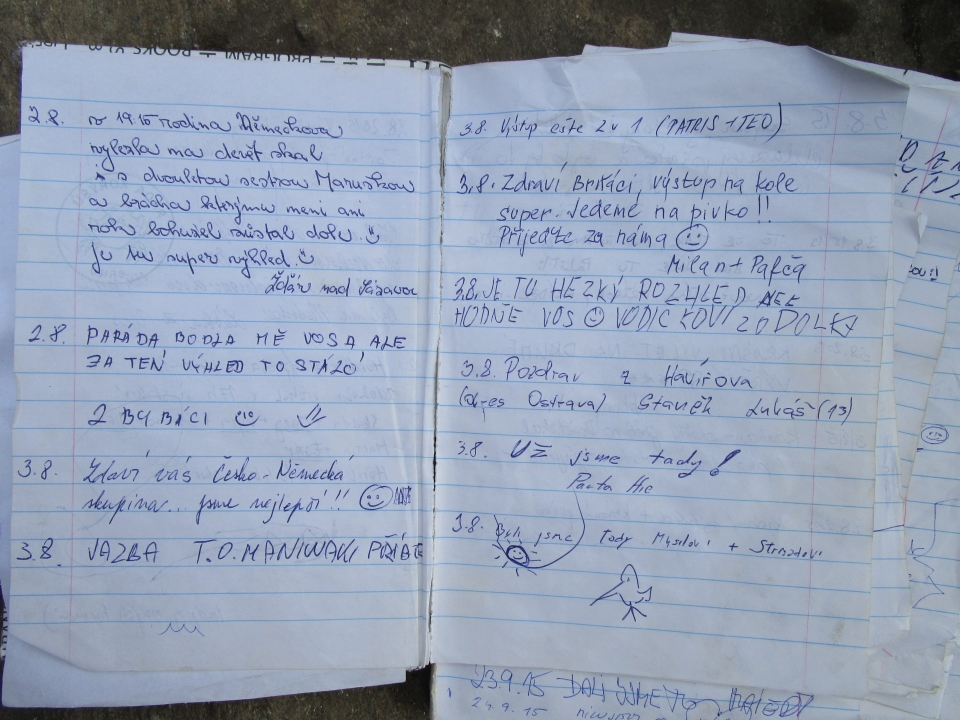 2.8. v 19.15 rodina Němečkova
vylezla na devět skal
i s dvouletou sestrou Maruškou
a brácha kterýmu není ani
roku bohužel zůstal dole.
je tu super výhled.
Žďár nad Sázavou
2.8. PARÁDA BODLA MĚ VOSA ALE
ZA TEN VÝHLED TO STÁLO
2 BYBÁCI
3.8. Zdraví vás Česko-Německá
skupina... jsme nejlepší!!
3.8. VAZBA T.O. MANIWAKI
3.8. Výstup ešte 2 v 1 (PATRIS + TEO)
3.8. Zdraví Briťáci, výstup na kole
super. Jedeme na pivko!!
Přijeďte za náma
Milan + Pafča
3.8. JE TU HEZKÝ ROZHLED
HODNĚ VOS VODIČKOVI Z DOLKY
3.8. Pozdrav z Havířova
(okres Ostrava) Staněk Lukáš (13)
3.8. UŽ jsme tady!
3.8. Byli jsme tady + Strnadovi
23.9.15 DALI JSME TO
24.9.15